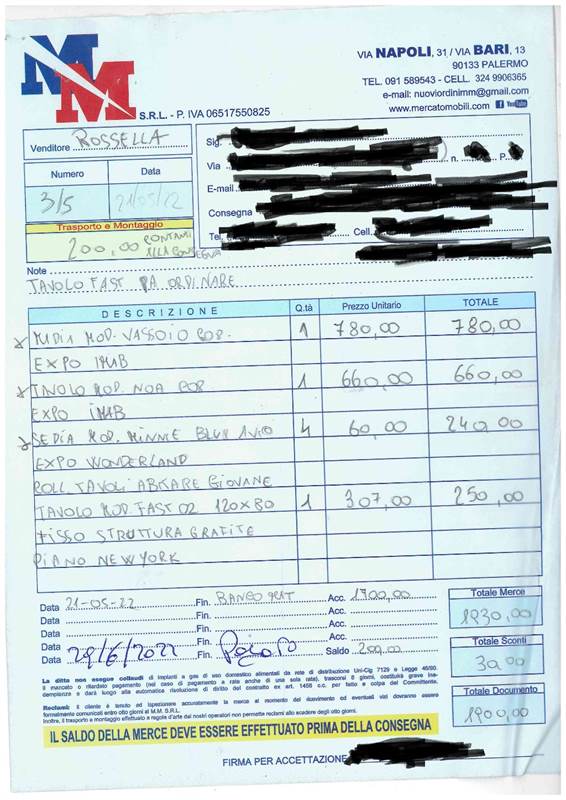 MM
S.R.L. - P. IVA 06517550825
VIA NAPOLI, 31 / VIA BARI, 13
90133 PALERMO
TEL. 091 589543 - CELL. 324 9906365
e-mail: nuoviordinimm@gmail.com
www.mercatomobili.com f YouTube
Venditore ROSSELLA
Numero Data
3/5 21/05/22
Trasporto e Montaggio
200,00 CONTANTI
ALLA CONSEGNA
Sig.
Via n. P.
E-mail
Consegna
Tel. Cell.
Note
TAVOLO FAST DA ORDINARE
DESCRIZIONE Q.tà Prezzo Unitario TOTALE
MADIA MOD. VASSOIO COR. 1 780,00 780,00
EXPO IMAB
TAVOLO MOD. NOA COR. 1 660,00 660,00
EXPO IMAB
SEDIA MOD. MINNIE BLUE AVIO 4 60,00 240,00
EXPO WONDERLAND
TAVOLI ABITARE GIOVANE
TAVOLO MOD. FAST 02 120x80 1 307,00 250,00
FISSO STRUTTURA GRAFITE
PIANO NEW YORK
Data 21-05-22 Fin. Acc. 1700,00
Data Fin. Acc.
Data Fin. Acc.
Data Fin. Acc.
Data 29/6/2022 Fin. Saldo 200,00
Totale Merce
1930,00
Totale Sconti
30,00
Totale Documento
1900,00
La ditta non esegue collaudi di impianti a gas di uso domestico alimentati da rete di distribuzione Uni-Cig 7129 e Legge 46/90.
Il mancato o ritardato pagamento (nel caso di pagamento a rate anche di una sola rata), trascorsi 8 giorni, costituirà grave ina-
dempienza e darà luogo alla automatica risoluzione di diritto del contratto ex art. 1456 c.c. per fatto e colpa del Committente.
Reclami: il cliente è tenuto ad ispezionare accuratamente la merce al momento del ricevimento ed eventuali vizi dovranno essere
formalmente comunicati entro otto giorni al M.M. S.R.L.
Inoltre, il trasporto e montaggio effettuato a regola d'arte dai nostri operatori non permette reclami allo scadere degli otto giorni.
IL SALDO DELLA MERCE DEVE ESSERE EFFETTUATO PRIMA DELLA CONSEGNA
FIRMA PER ACCETTAZIONE